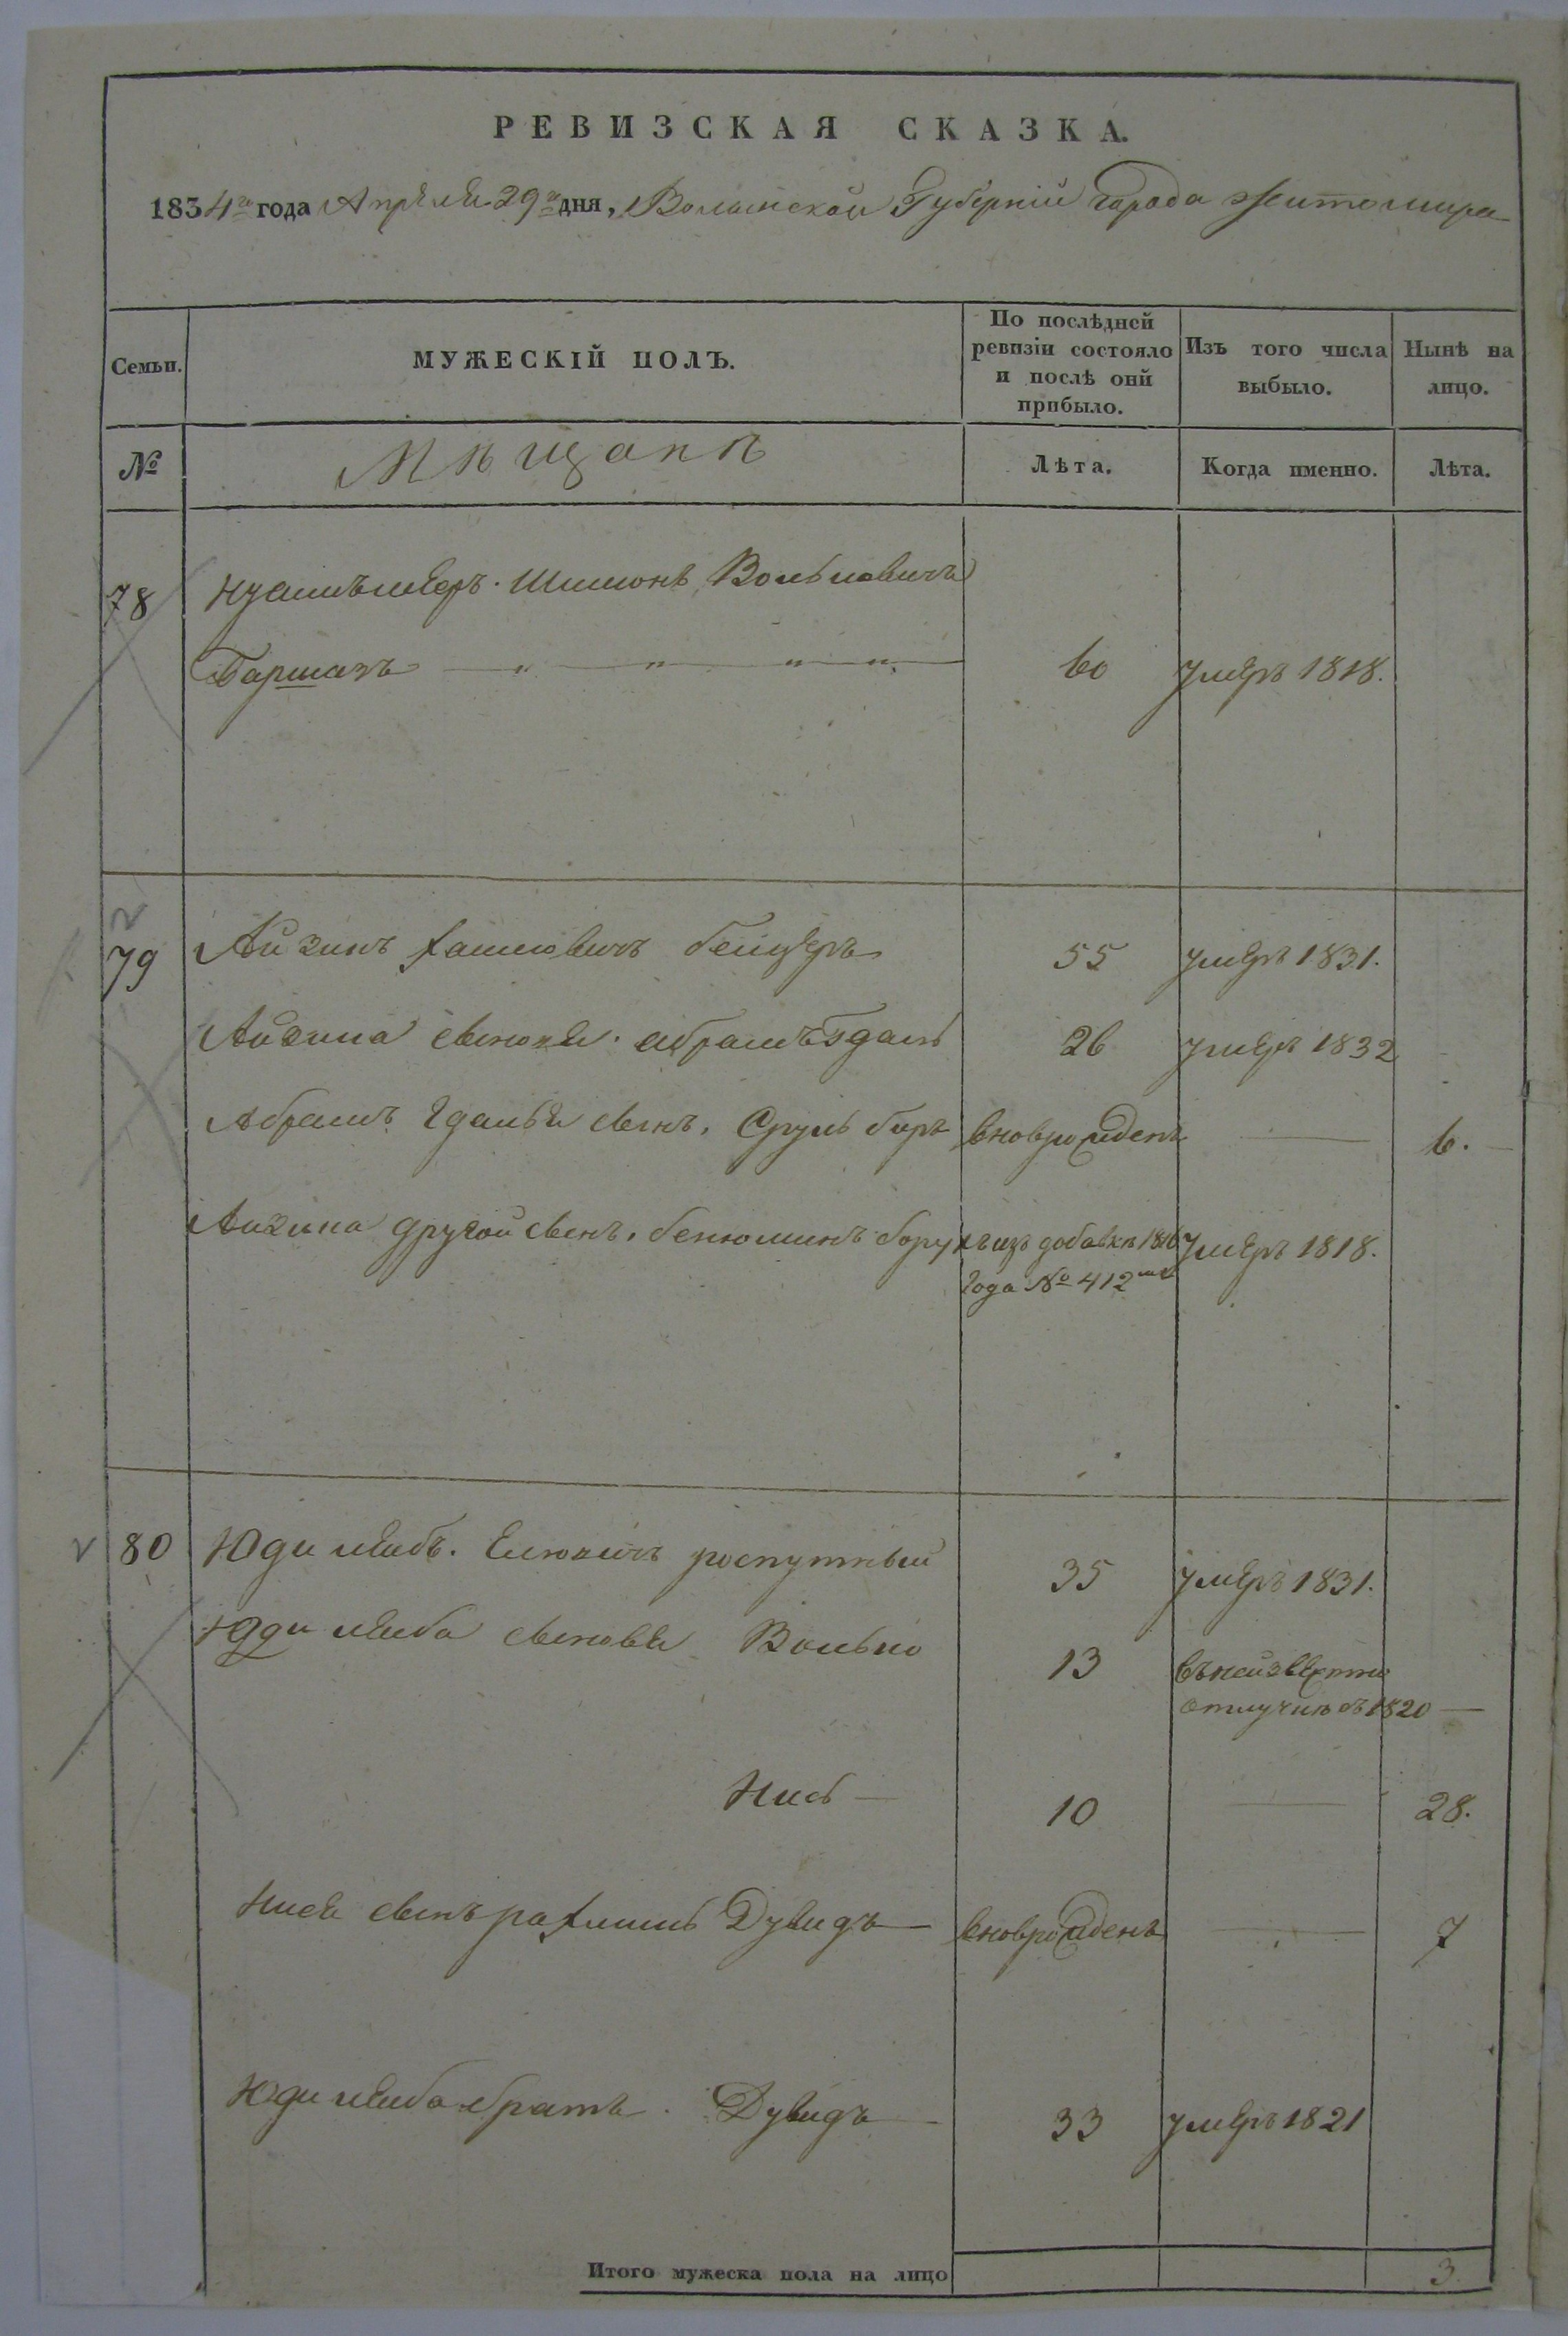 РЕВИЗСКАЯ СКАЗКА.
1834го года Апреля 29го дня, Волынской Губернии города Житомира
Семьи. МУЖЕСКІЙ ПОЛЪ. По послѣдней ревизіи состояло и послѣ оий прибыло. Изъ того числа выбыло. Нынѣ на лицо.
№ Мѣщанѣ Лѣта. Когда именно. Лѣта.
78 Шимонъ Вольковичъ
60 умеръ 1818.
79 Айзикъ Хаимовичъ бейдеръ 55 умеръ 1831.
Айзика сынъ абрамъ гдаль 26 умеръ 1832
Абрамъ Гдалья сынъ. Сруль беръ вноврожденъ — 6.
Айзика другой сынъ. бенюминъ борухъ изъ добавки 1816 умеръ 1818.
года № 412
80 Юди лейбъ. роспутный 35 умеръ 1831.
Юди лейба сыновья Волько 13 въ неизвестно
отлучкѣ съ 1820 —
Нись — 10 — 28.
Нися сынъ рахмиль Дувидъ — вноврожденъ — 7
Юди лейба братъ. Дувидъ — 33 умеръ 1821
Итого мужеска пола на лицо 3